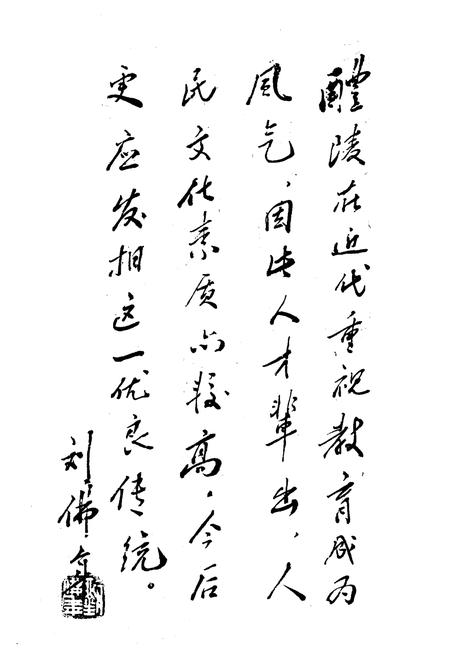 醴陵在近代重视教育成为
风气、因此人才辈出、人
民文化素质亦较高。今后
更应发扬这一优良传统。
刘佛年